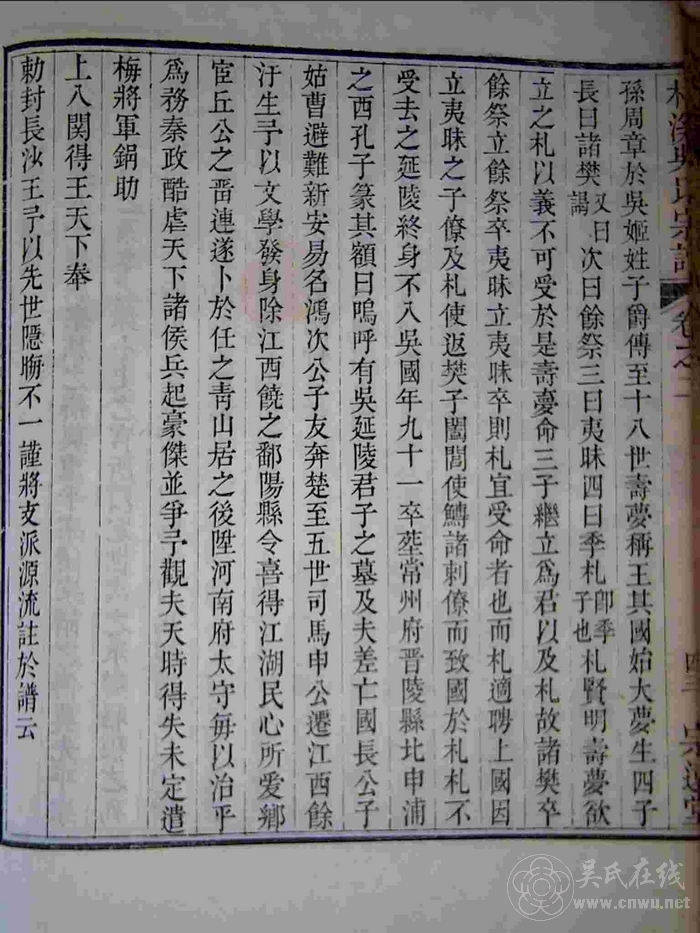 孫周章於吳姬姓子爵傳至十八世壽夢稱王其國始大夢生四子
長曰諸樊又曰謁次曰餘祭三曰夷昧四曰季札即季子也札賢明壽夢欲
立之札以義不可受於是壽夢命三子繼立爲君以及札故諸樊卒
餘祭立餘祭卒夷昧立夷昧卒則札宜受命者也而札適聘上國因
立夷昧之子僚及札使返樊子闔閭使鱄諸刺僚而致國於札札不
受去之延陵終身不入吳國年九十一卒塟常州府晋陵縣北申浦
之西孔子篆其額曰嗚呼有吳延陵君子之墓及夫差亡國長公子
姑曹避難新安易名鴻次公子友奔楚至五世司馬申公遷江西餘
汙生予以文學發身除江西饒之鄱陽縣令喜得江湖民心所愛鄉
宦丘公之晋連遂卜於任之靑山居之後陞河南府太守每以治平
爲務秦政酷虐天下諸侯兵起豪傑並爭予觀夫天時得失未定遣
梅將軍鋗助
上入関得王天下奉
勅封長沙王予以先世隱晦不一謹將支派源流註於譜云
吳氏宗譜
卷之
吴氏在线
www.cnwu.net